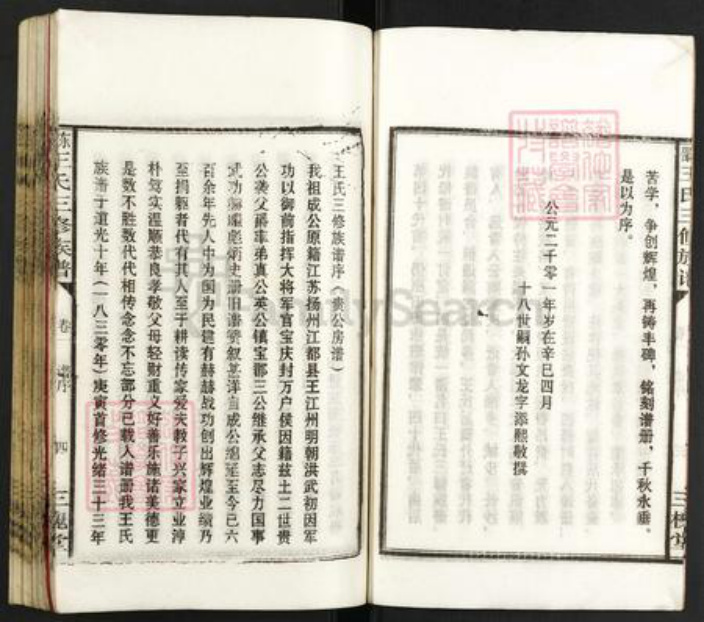 苦学，争创辉煌，再铸丰碑，铭刻谱册，千秋永垂。
是以为序。
公元二千零一年岁在辛巳四月
十八世嗣孙文龙字添熙敬撰
王氏三修族谱
三槐堂
王氏三修族谱序（贵公房谱）
我祖成公原籍江苏扬州江都县王江州明朝洪武初因军
功以御前指挥大将军官宝庆封万户侯因籍兹土二世贵
公袭父爵率弟真公英公镇宝郡三公继承父志尽力国事
武功巍巍彪炳史册旧谱赞叙甚详自成公绵延至今已六
百余年先人中为国为民建有赫赫战功创出辉煌业绩乃
至捐躯者代有其人至于耕读传家爱夫教子兴家立业淳
朴笃实温顺恭良孝敬父母轻财重义好善乐施诸美德更
是数不胜数代代相传念念不忘部分已载入谱册我王氏
族谱于道光十年（一八三零年）庚寅首修光绪三十三年
王氏三修族谱
卷
谱序
四
三槐堂
FamilySearch